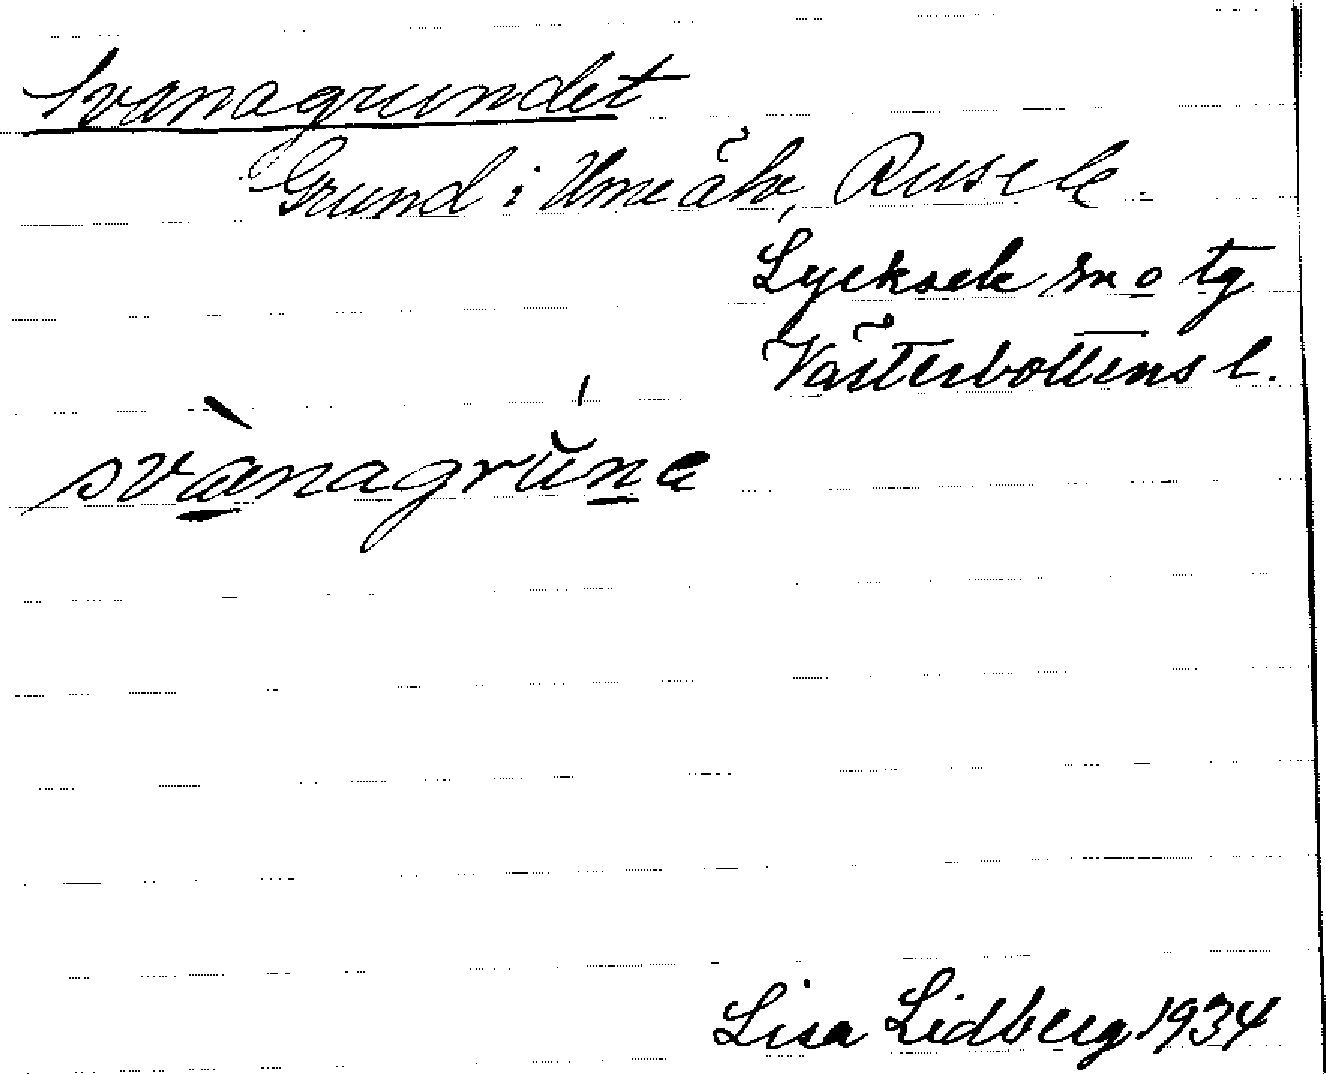 Svanagrundet
Grund i Umeälv, Rusele
Lycksele sn o tg
Västerbottens l.
svànagrŭne
Lisa Lidberg 1934